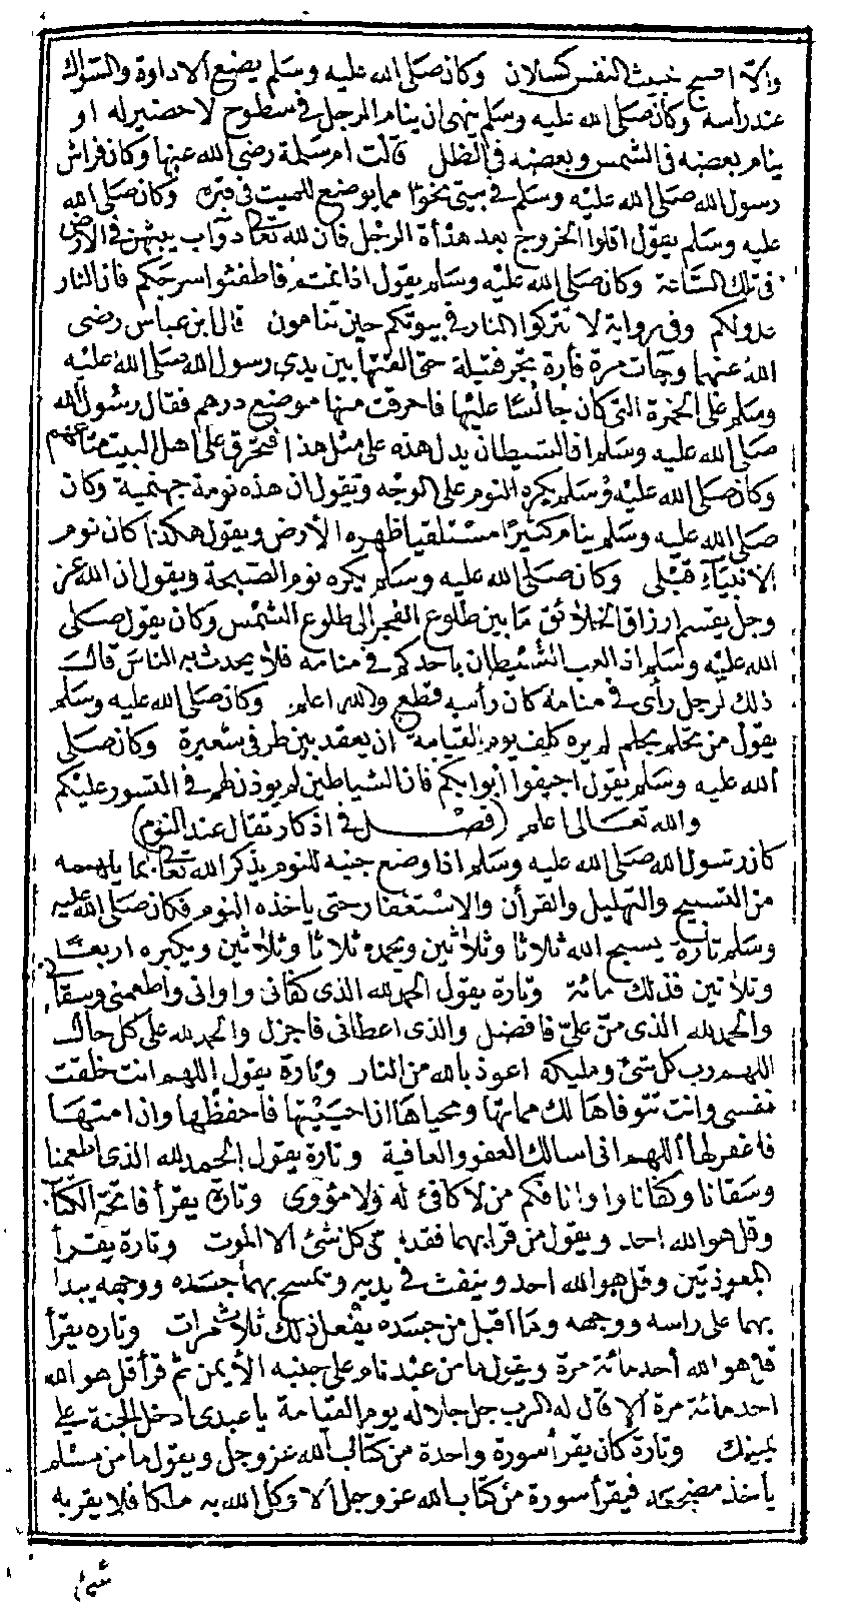 والا اصبح خبيث النفس كسلان وكان صلى الله عليه وسلم يضع الاداوة والسواك
عند رأسه وكان صلى الله عليه وسلم ينهى ان ينام الرجل فى سطوح لا حضير له او
ينام بعضه فى الشمس وبعضه فى الظل قالت ام سلمة رضى الله عنها وكان فراش
رسول الله صلى الله عليه وسلم فى بيتى نحوا مما يوضع للميت فى قبره وكان صلى الله
عليه وسلم يقول اقلوا الخروج بعد هدأة الرجل فان لله تعالى دوآب يبثهن فى الارض
فى تلك الساعة وكان صلى الله عليه وسلم يقول اذا نمتم فاطفئوا سرجكم فان النار
عدولكم وفى رواية لا تتركوا النار فى بيوتكم حين تنامون قال ابن عباس رضى
الله عنهما وجآت مرة فأرة تجر فتيلة حتى القتها بين يدى رسول الله صلى الله عليه
وسلم على الخمرة التى كان جالسا عليها فاحرقت منها موضع درهم فقال رسول الله
صلى الله عليه وسلم ان الشيطان يدل هذه على مثل هذا فتحرق على اهل البيت متاعهم
وكان صلى الله عليه وسلم يكره النوم على الوجه ويقول ان هذه نومة جهنمية وكان
صلى الله عليه وسلم ينام كثيرا مستلقيا ظهره الأرض ويقول هكذا كان نوم
الانبيآء قبلى وكان صلى الله عليه وسلم يكره نوم الصبحة ويقول ان الله عز
وجل يقسم ارزاق الخلائق ما بين طلوع الفجر الى طلوع الشمس وكان يقول صلى
الله عليه وسلم اذا لعب الشيطان بأحدكم فى منامه فلا يحدث به الناس قالت
ذلك لرجل رأى فى منامه كان رأسه قطع والله اعلم وكان صلى الله عليه وسلم
يقول من تحلم بحلم لم يره كلف يوم القيامة ان يعقد بين طرفى شعيرة وكان صلى
الله عليه وسلم يقول اجيفوا أبوابكم فان الشياطين لم يوذن لهم فى التسور عليكم
والله تعالى اعلم (فصل فى اذكار تقال عند النوم)
كان رسول الله صلى الله عليه وسلم اذا وضع جنبه للنوم يذكر الله تعالى بما يلهمه
من التسبيح والتهليل والقرأن والاستغفار حتى ياخذه النوم فكان صلى الله عليه
وسلم تارة يسبح الله ثلاثا وثلاثين ويحمده ثلاثا وثلاثين ويكبره اربعا
وثلاثين فذلك مائة وتارة يقول الحمد لله الذى كفانى واوانى واطعمنى وسقانى
والحمد لله الذى من على فافضل والذى اعطانى فاجزل والحمد لله على كل حال
اللهم رب كل شئ ومليكه اعوذ بالله من النار وتارة يقول اللهم انت خلقت
نفسى وانت تتوفاها لك مماتها ومحياها ان احييتها فاحفظها وان امتها
فاغفر لها اللهم انى اسالك العفو والعافية وتارة يقول الحمد لله الذى اطعمنا
وسقانا وكفانا واوانا فكم من لا كافئ له ولا مؤوى وتارة يقرأ فاتحة الكتاب
وقل هو الله احد ويقول من قرا بهما فقد امن كل شئ الا الموت وتارة يقرأ
المعوذتين وقل هو الله احد وينفث فى يديه ويمسح بهما جسده ووجهه يبدا
بهما على راسه ووجهه وما اقبل من جسده يفعل ذلك ثلاث مرات وتاره يقرأ
قل هو الله أحد مائة مرة ويقول ما من عبد نام على جنبه الأيمن ثم قرأ قل هو الله
احد مائة مرة الا قال له الرب جل جلاله يوم القيامة يا عبدى ادخل الجنة على
يمينك وتارة كان يقرأ سورة واحدة من كتاب الله عز وجل ويقول ما من مسلم
يأخذ مضجعه فيقرأ سورة من كتاب الله عز وجل الا وكل الله به ملكا فلا يقربه
شئ